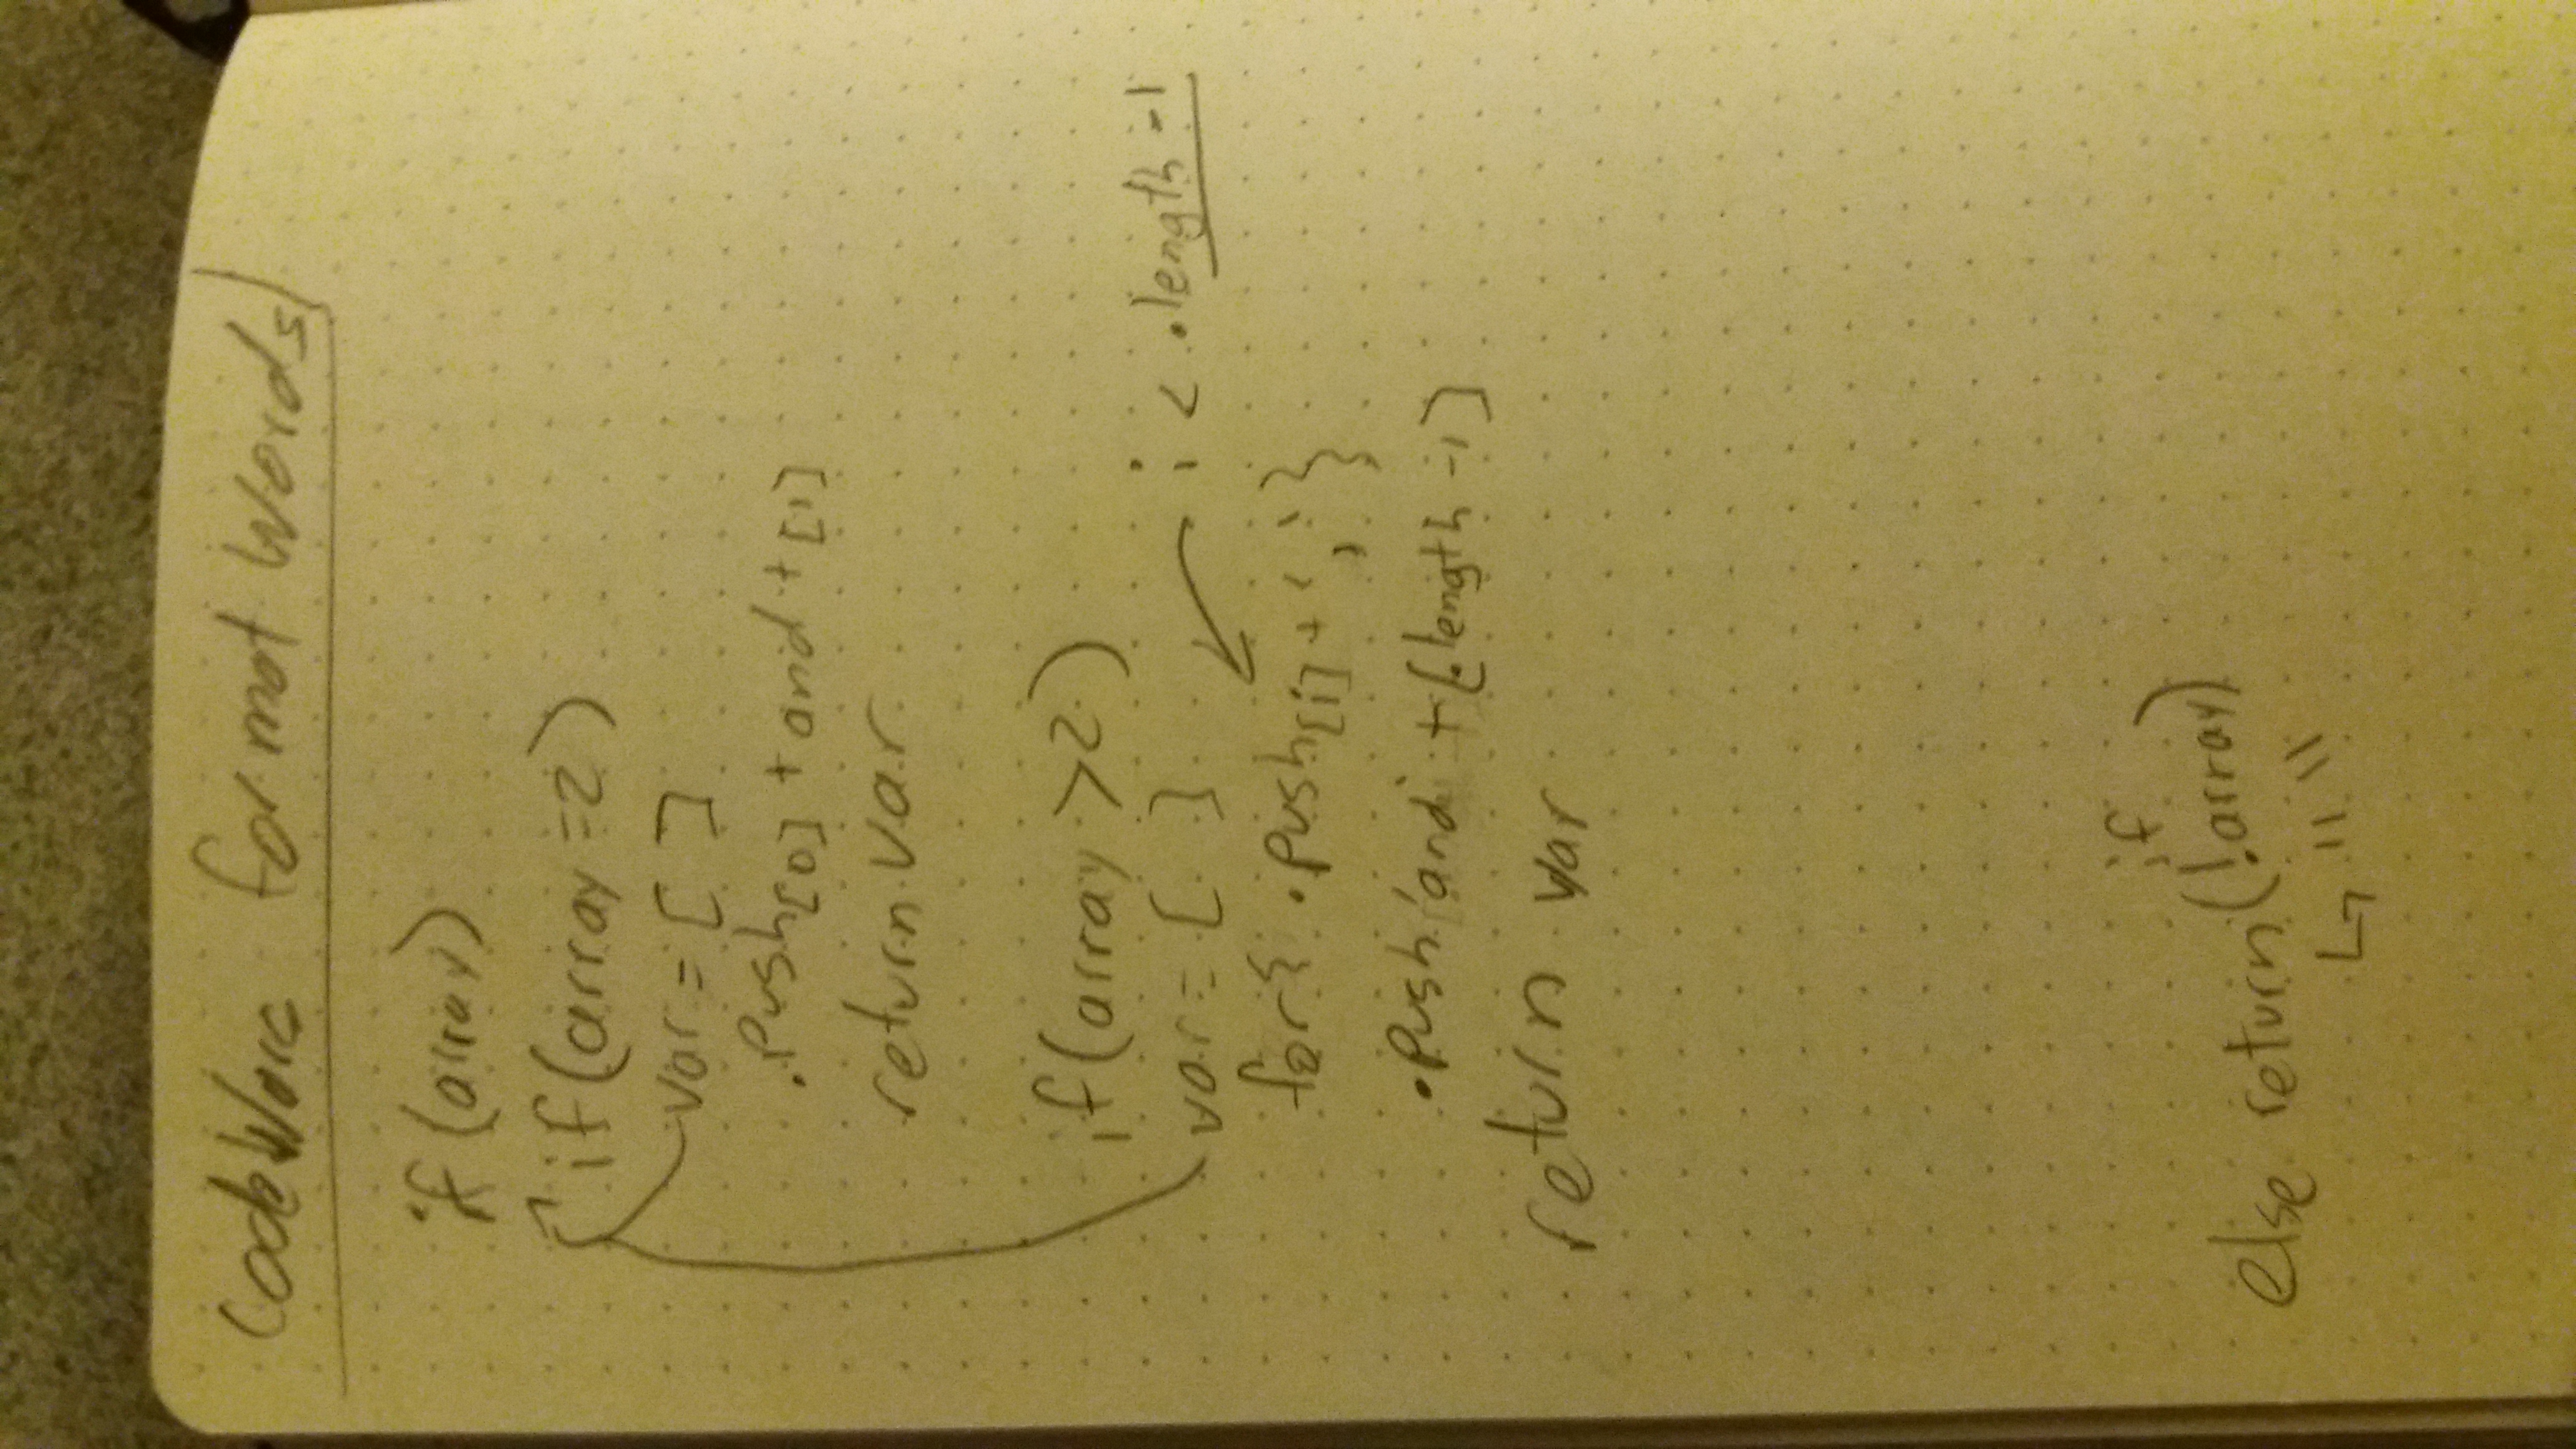 CodeWars format words
if (array)
if (array = 2)
var = [ ]
.push[0] + and + [1]
return var
if (array > 2)
i < .length - 1
var = [ ]
for { .push[i] + ' , ' }
.push 'and' + [.length - 1]
return var
if
else return (!array)
" "